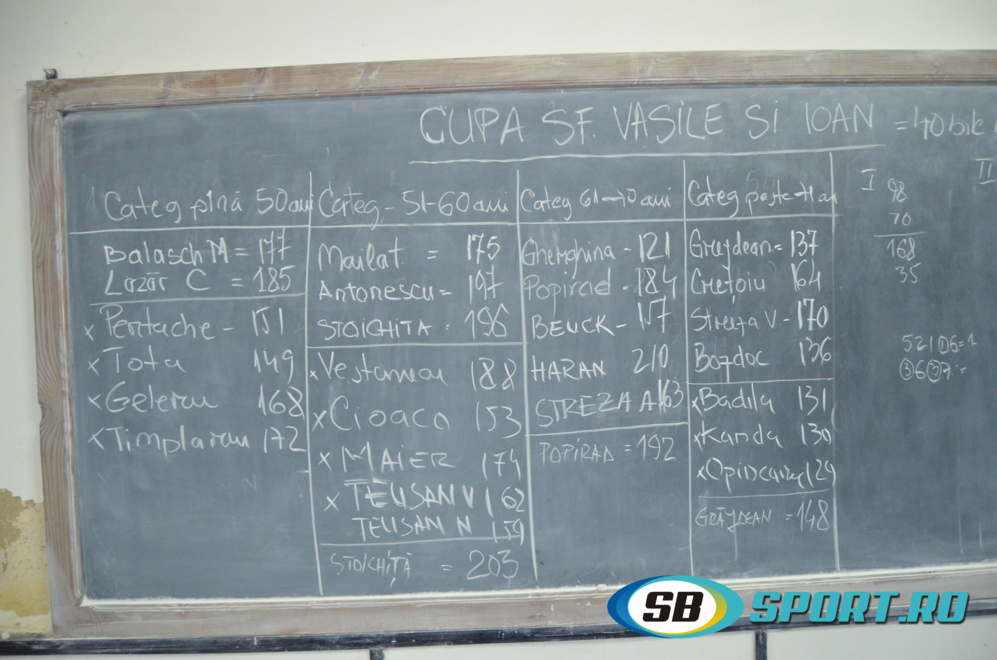 CUPA SF. VASILE SI IOAN = 40 bile
Categ pînă 50 ani
Balasch M = 177
Lazăr C = 185
x Pentache - 151
x Tota 149
x Geleru 168
x Timplaru 172
Categ - 51-60 ani
Mailat = 175
Antonescu = 197
STOICHITA = 196
x 188
x Cioaco 153
x MAIER 174
x TELISAN V 162
TELISAN N 159
STOICHIȚĂ = 203
Categ 61-70 ani
Gherghina - 121
Popirad - 184
BEUCK - 157
HARAN 210
STREZA A 163
POPIRAD = 192
Categ peste 71 ani
Grejdean = 137
Crețoiu 164
Streza V - 170
Bogdoc 136
x Badila 131
x Kanda 130
x 129
GRĂJDEAN = 148
I
98
70
168
35
II
SB SPORT.RO